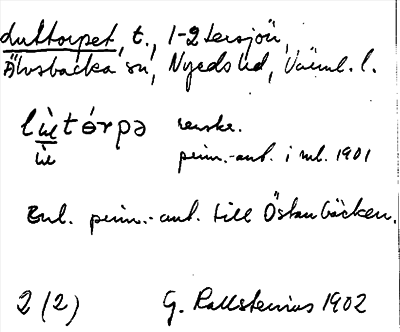 Luttorpet, t., 1-2 Lersjön,
Älvsbacka sn, Nyeds hd, Värml. l.
lùtórpə renskr.
ùu prim.-ant. i ml. 1901
Enl. prim.-ant. till Östanbäcken.
2 (2) G. Kallstenius 1902